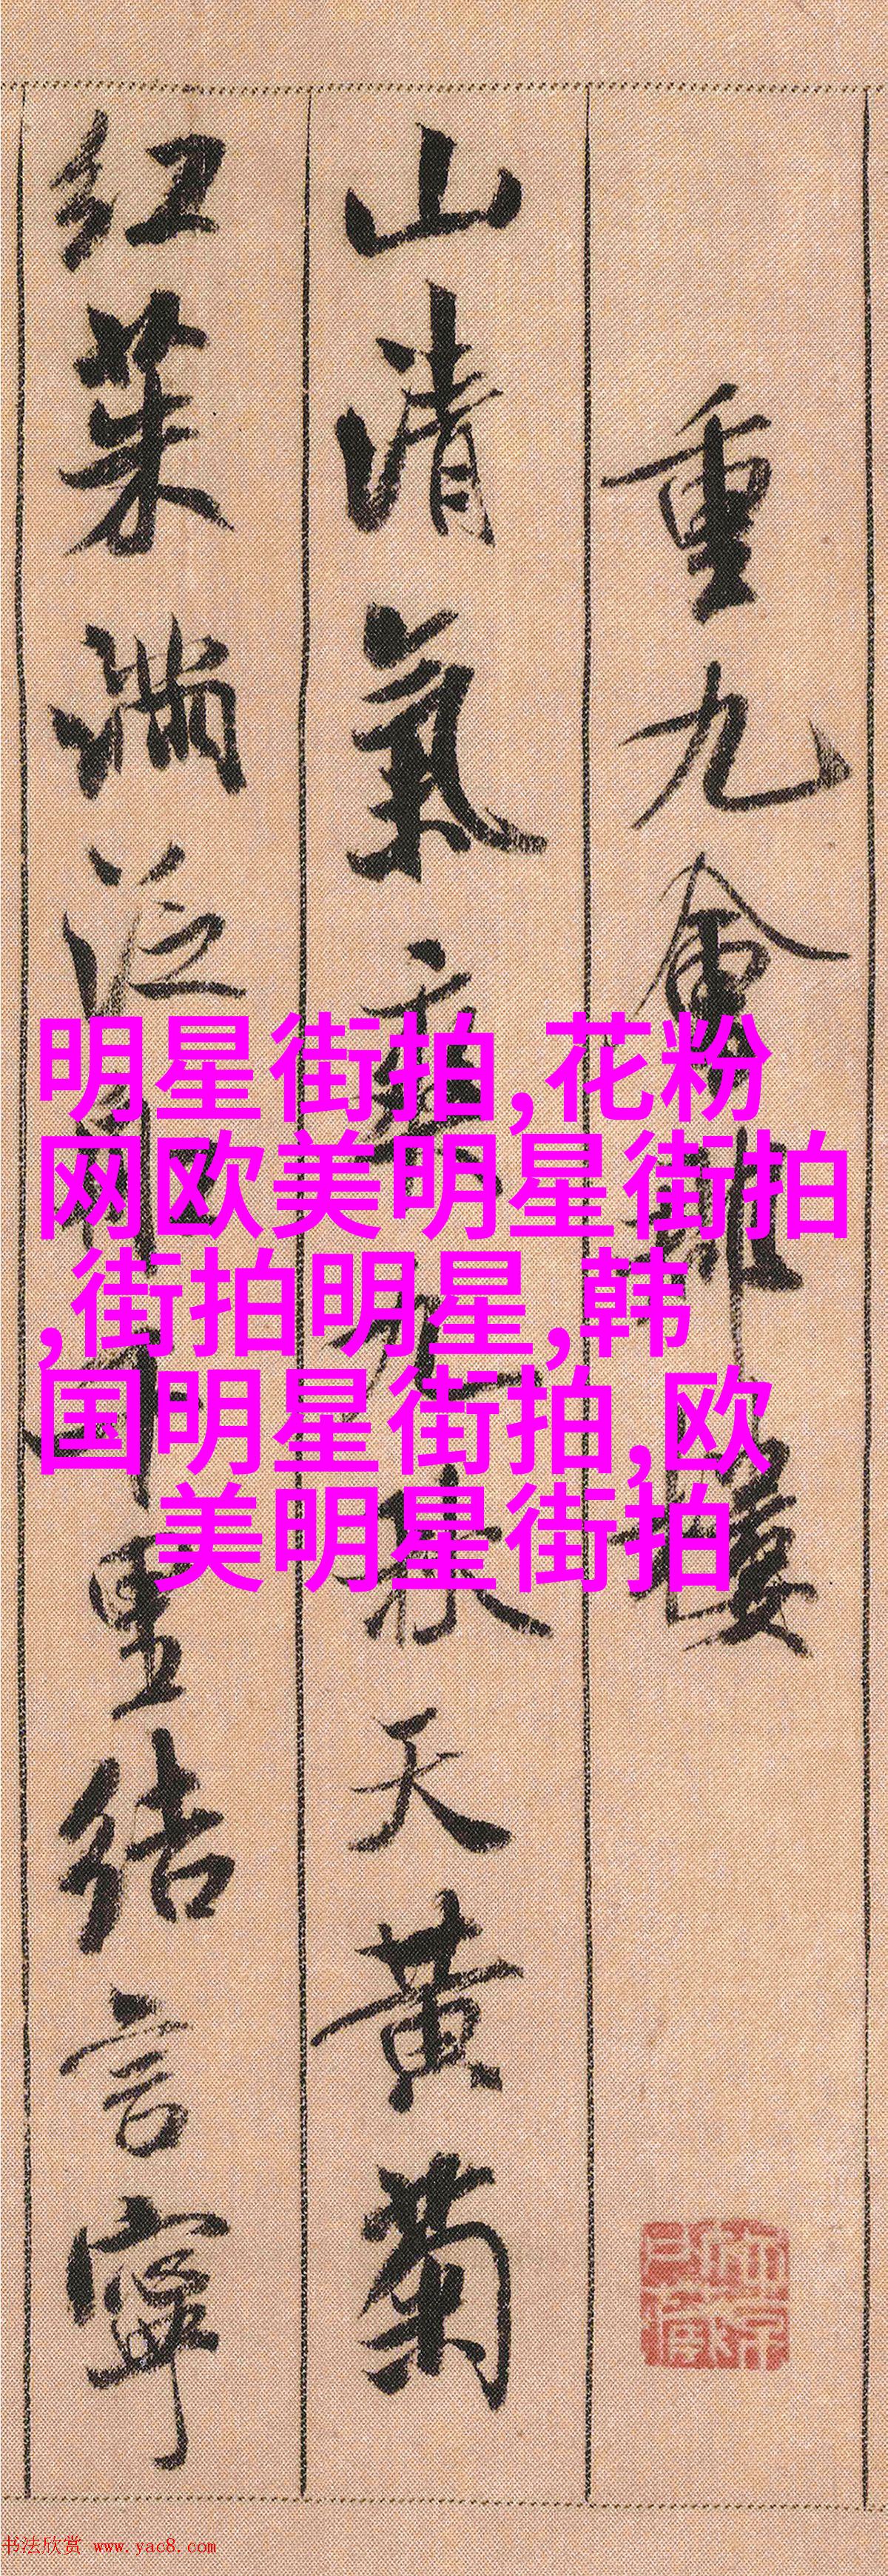 重九會郡樓
山清氣爽九秋天黃菊
紅茱滿泛船千里結言寧
明星街拍,花粉
网欧美明星街拍
,街拍明星,韩
国明星街拍,欧
美明星街拍
书法欣赏 www.yac8.com